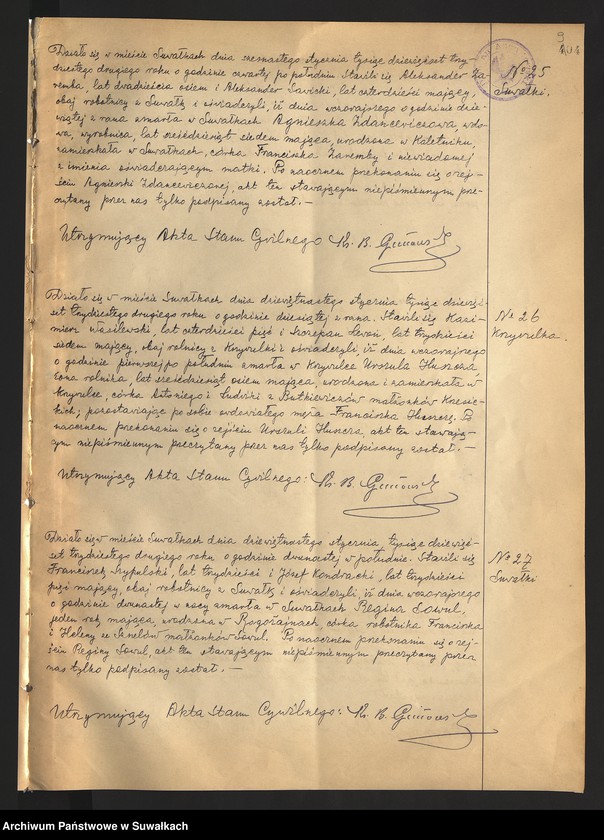 9
101
Działo się w mieście Suwałkach dnia szesnastego stycznia tysiąc dziewięćset trzy-
dziestego drugiego roku o godzinie czwartej po południu. Stawili się Aleksander Za-
renka, lat dwadzieścia osiem i Aleksander Sawicki, lat czterdzieści mający,
obaj robotnicy z Suwałk i oświadczyli, iż dnia wczorajszego o godzinie dzie-
wiątej z rana zmarła w Suwałkach Agnieszka Zdancewiczowa, wdo-
wa, wyrobnica, lat sześćdziesiąt siedem mająca, urodzona w Kaletniku,
zamieszkała w Suwałkach, córka Franciszka Zaremby i niewiadomej
z imienia oświadczającym matki. Po naocznem przekonaniu się o zej-
ściu Agnieszki Zdancewiczowej, akt ten stawającym niepiśmiennym prze-
czytany przez nas tylko podpisany został. —
Utrzymujący Akta Stanu Cywilnego Ks. B.
No 25
Suwałki.
Działo się w mieście Suwałkach dnia dziewiętnastego stycznia tysiąc dziewięć-
set trzydziestego drugiego roku o godzinie dziesiątej z rana. Stawili się Kazi-
mierz Wasilewski, lat czterdzieści pięć i Szczepan, lat trzydzieści
siedem mający, obaj rolnicy z Krzywólki i oświadczyli, iż dnia wczorajszego
o godzinie pierwszej po południu zmarła w Krzywólce Urszula Huszcza,
żona rolnika, lat sześćdziesiąt osiem mająca, urodzona i zamieszkała w
Krzywólce, córka Antoniego i Ludwiki z Butkiewiczów małżonków
kich; pozostawiając po sobie owdowiałego męża Franciszka Huszczę. Po
naocznem przekonaniu się o zejściu Urszuli Huszcza, akt ten stawają-
cym niepiśmiennym przeczytany przez nas tylko podpisany został. —
Utrzymujący Akta Stanu Cywilnego: Ks. B.
No 26
Krzywólka.
Działo się w mieście Suwałkach dnia dziewiętnastego stycznia, tysiąc dziewięć-
set trzydziestego drugiego roku o godzinie dwunastej w południe. Stawili się
Franciszek Szypulski, lat trzydzieści i Józef Kondracki, lat trzydzieści
pięć mający, obaj robotnicy z Suwałk i oświadczyli, iż dnia wczorajszego
o godzinie dwunastej w nocy zmarła w Suwałkach Regina Sowul,
jeden rok mająca, urodzona w Rogożajnach, córka robotnika Franciszka
i Heleny ze małżonków Sowul. Po naocznem przekonaniu się o zej-
ściu Reginy Sowul, akt ten stawającym niepiśmiennym przeczytany przez
nas tylko podpisany został. —
Utrzymujący Akta Stanu Cywilnego: Ks. B.
No 27
Suwałki
Archiwum Państwowe w Suwałkach